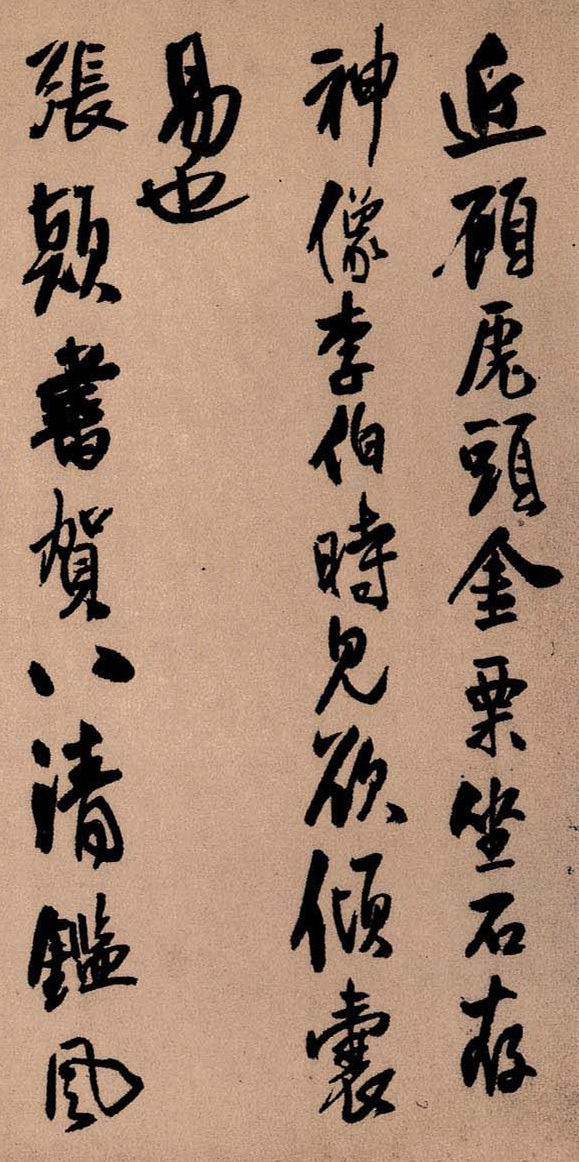 近顧虎頭金粟坐石存
神像李伯時見欲傾囊
易也
張顛書賀八清鑑風